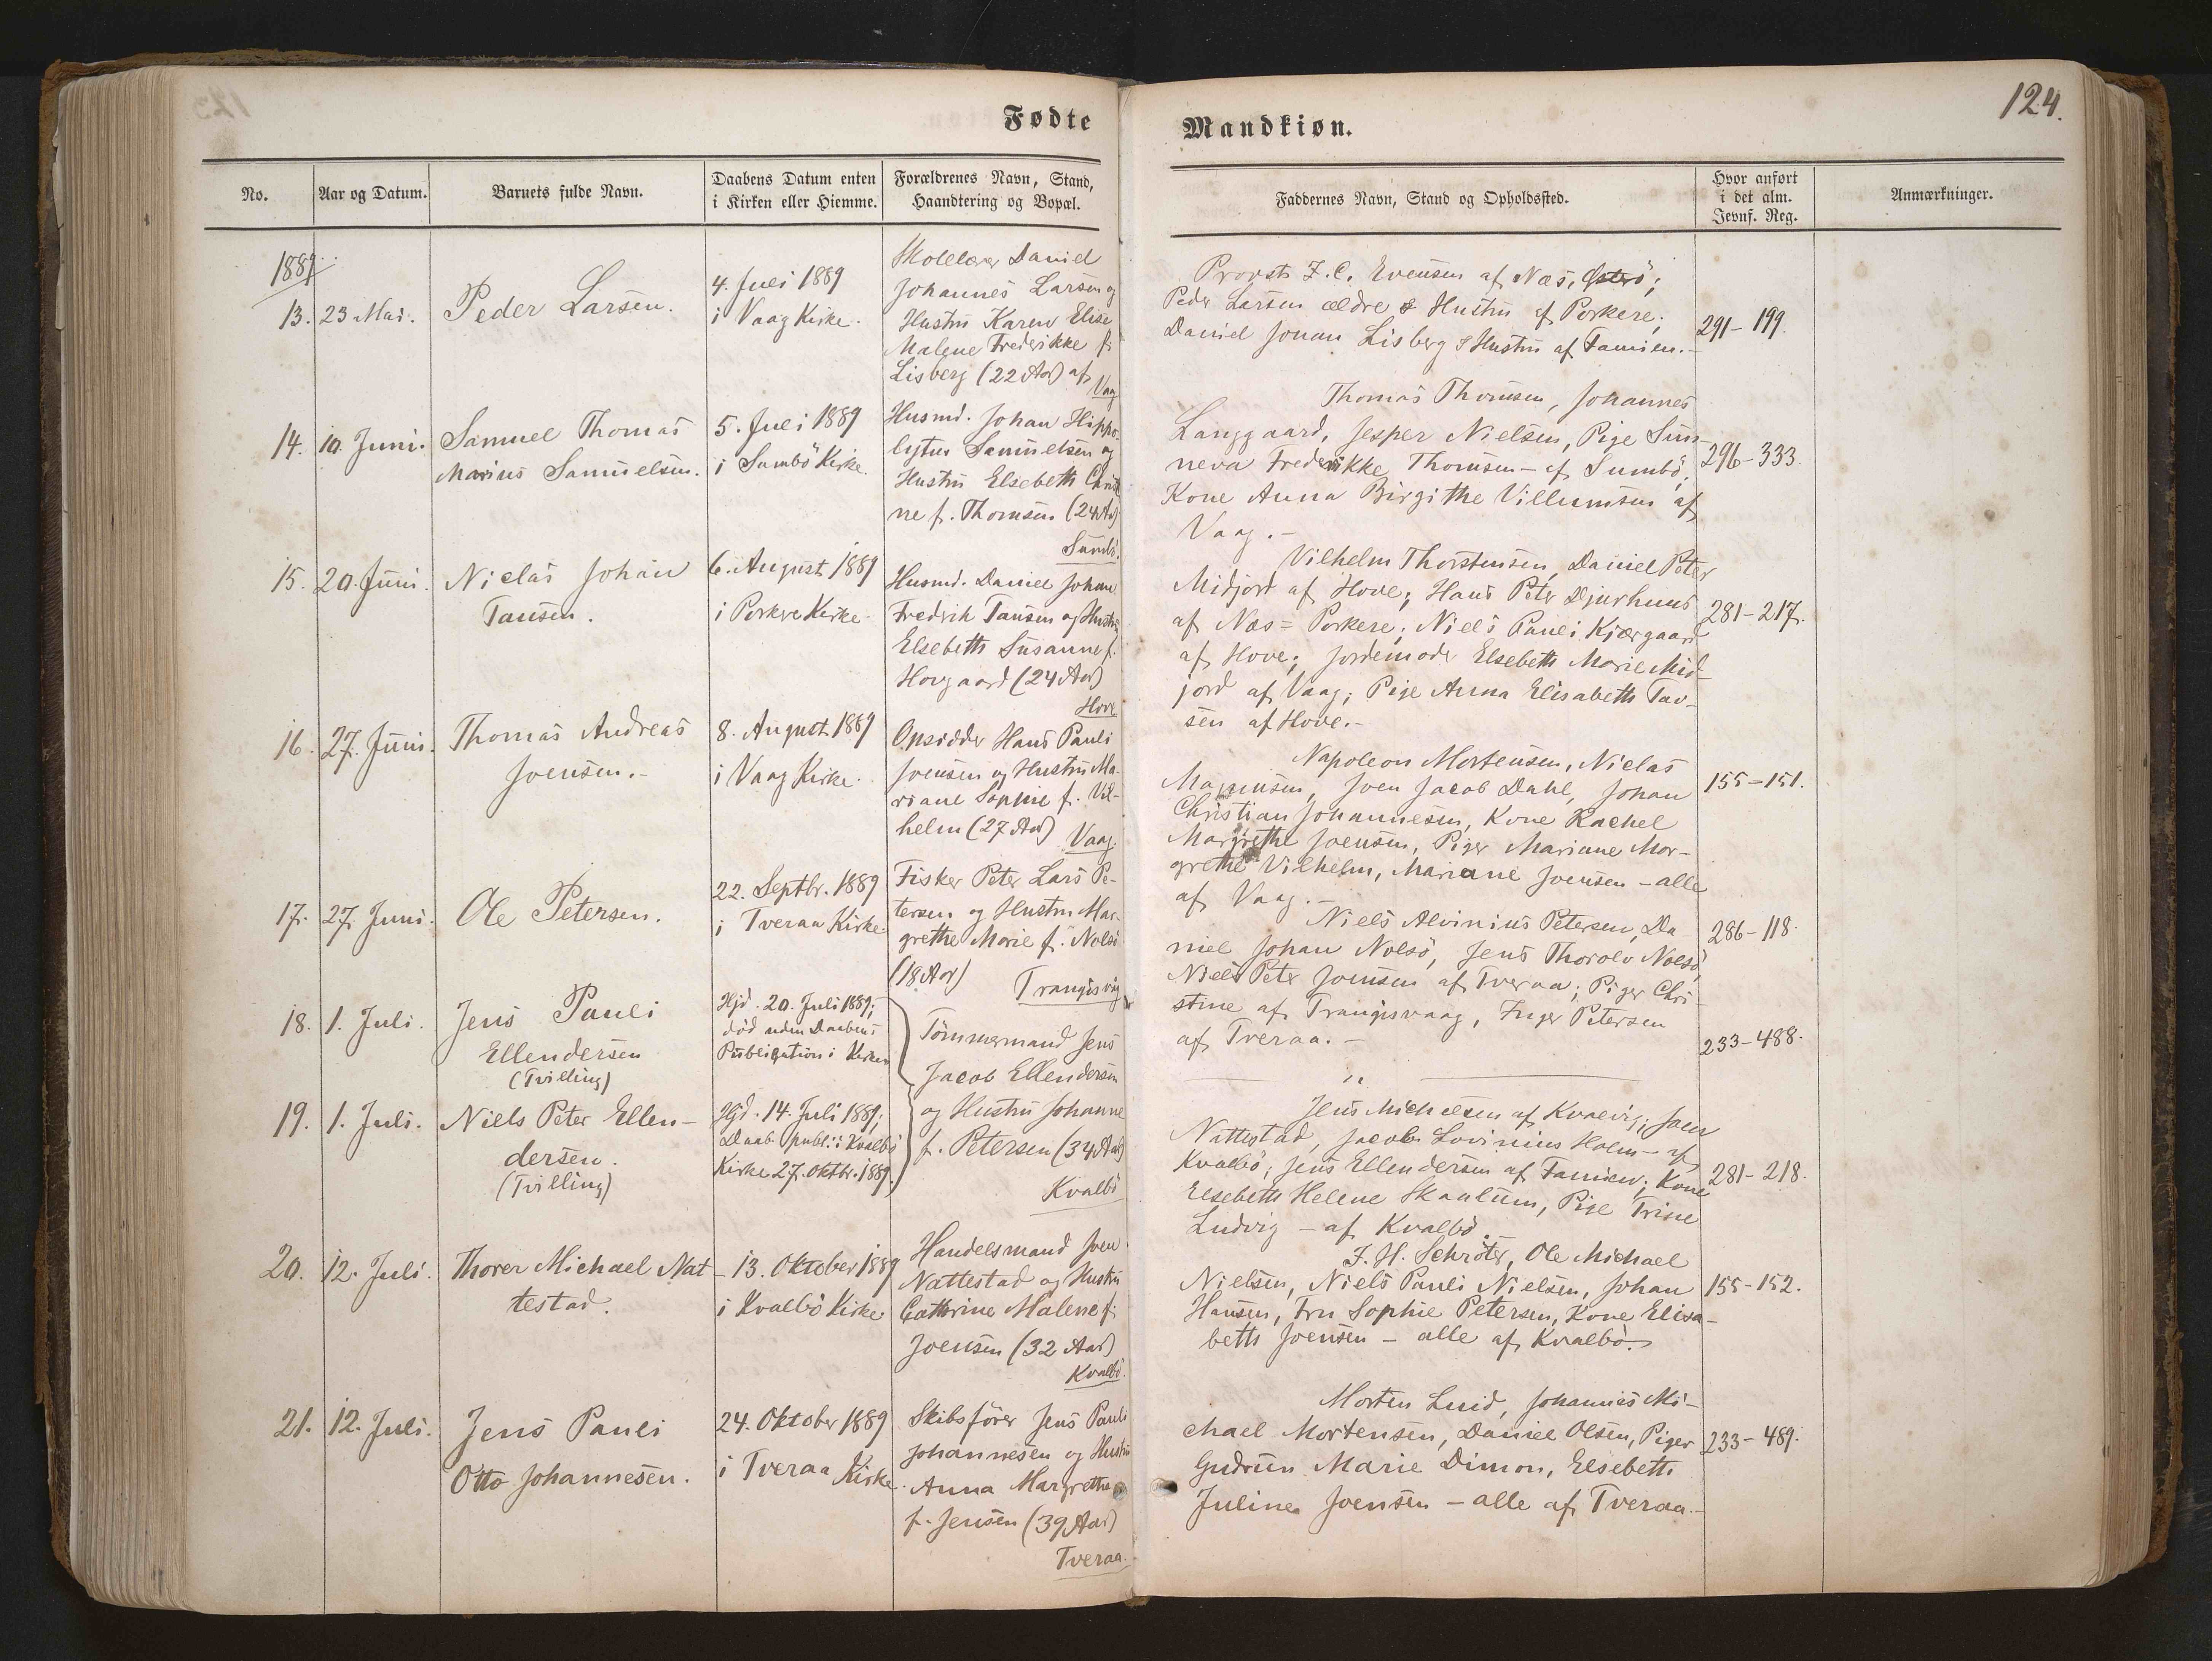 Fødte
No.
Aar og Datum.
Barnets fulde Navn.
Daabens Datum enten
i Kirken eller Hiemme.
Forældrenes Navn, Stand,
Haandtering og Bopæl.
1889
13.
23 Mai.
Peder Larsen.
4. Juli 1889
i Vaag Kirke.
Skolelærer Daniel
Johannes Larsen og
Hustru Karen Elise
Malene Frederikke f.
Lisberg (22 Aar) af
Vaag
14.
10. Juni.
Samuel Thomas
Marius Samuelsen.
5. Juli 1889
i Sumbö Kirke.
Husmd. Johan Hippo-
lytus Samuelsen og
Hustru Elsebeth Christi
ne f. Thomsen (24 Aar)
Sumbö.
15.
20. Juni.
Niclas Johan
Tausen.
6. August 1889
i Porkere Kirke.
Husmd. Daniel Johan
Fredrik Tausen og Hustru
Elsebeth Susanne f.
Hovgaard (24 Aar)
Hove
16.
27. Juni.
Thomas Andreas
Joensen.-
8. August 1889
i Vaag Kirke.
Opsidder Hans Pauli
Joensen og Hustru Ma-
riane Sophie f. Vil-
helm (27 Aar)
Vaag.
17.
27. Juni.
Ole Petersen.
22. Septbr. 1889
i Tveraa Kirke.
Fisker Peter Lars Pe-
tersen og Hustru Mar-
grethe Marie f. Nolsö
(18 Aar)
Trangisvaag
18.
1. Juli.
Jens Pauli
Ellendersen
(Tvilling)
Hjd. 20. Juli 1889;
död uden Daabens
Publication i Kirken
Tömmermand Jens
Jacob Ellendersen
og Hustru Johanne
f. Petersen (34 Aar)
Kvalbö
19.
1. Juli.
Niels Peter Ellen-
dersen.
(Tvilling)
Hjd. 14. Juli 1889;
Daab. publ. i Kvalbö
Kirke 27. Oktbr. 1889.
20.
12. Juli.
Thorer Michael Nat-
testad.
13. Oktober 1889
i Kvalbö Kirke.
Handelsmand Joen
Nattestad og Hustru
Cathrine Malene f.
Joensen (32 Aar)
Kvalbö.
21.
12. Juli.
Jens Pauli
Otto Johannesen.
24. Oktober 1889
i Tveraa Kirke.
Skibsförer Jens Pauli
Johannesen og Hustru
Anna Margrethe
f. Jensen (39 Aar)
Tveraa.
Mandkiøn.
124.
Faddernes Navn, Stand og Opholdssted.
Hvor anført
i det alm.
Jevnf. Reg.
Anmærkninger.
Provst F. C. Evensen af Næs, Österö;
Peder Larsen ældre & Hustru af Porkere;
Daniel Jonan Lisberg & Hustru af Famien.-
291-199.
Thomas Thomsen, Johannes
Langgaard, Jesper Nielsen, Pige Sun-
neva Frederikke Thomsen - af Sumbö;
Kone Anna Birgithe Villumsen af
Vaag.-
296-333.
Vilhelm Thorstensen, Daniel Peter
Midjord af Hove; Hans Peter Djurhuus
af Næs = Porkere; Niels Pauli Kjærgaard
af Hove; Jordemoder Elsebeth Marie Mid-
jord af Vaag; Pige Anna Elisabeth Tav-
sen af Hove.-
281-217.
Napoleon Mortensen, Niclas
Magnusen, Joen Jacob Dahl, Johan
Christian Johannesen, Kone Rachel
Margrethe Joensen, Piger Mariane Mar-
grethe Vilhelm, Mariane Joensen - alle
af Vaag.-
155-151.
Niels Alvinius Petersen, Da-
niel Johan Nolsö, Jens Thorolv Nolsö,
Niels Peter Joensen af Tveraa; Piger Chri-
stine af Trangisvaag, Inger Petersen
af Tveraa.-
286-118.
"
233-488.
Jens Michelsen af Kvalvig; Joen
Nattestad, Jacob Lovinius Holm - af
Kvalbö; Jens Ellendersen af Famien; Kone
Elsebeth Helene Skaalum, Pige Trine
Ludvig - af Kvalbö.-
281-218.
F. H. Schröter, Ole Michael
Nielsen, Niels Pauli Nielsen, Johan
Hansen, Fru Sophie Petersen, Kone Elisa-
beth Joensen - alle af Kvalbö.
155-152.
Morten Luid, Johannes Mi-
chael Mortensen, Daniel Olsen, Piger
Gudrun Marie Dimon, Elsebeth
Juline Joensen - alle af Tveraa.-
233-489.